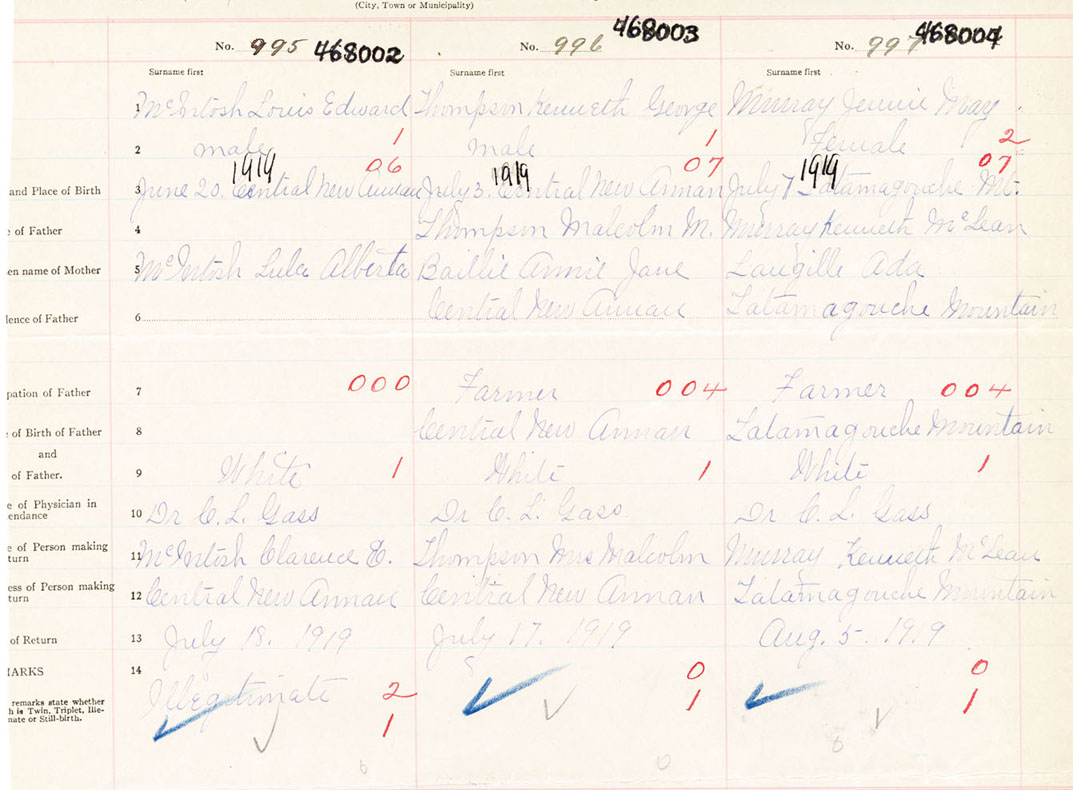 (City, Town or Municipality)
No. 995 468002 No. 996 468003 No. 997 468004
Surname first Surname first Surname first
1 McIntosh Louis Edward Thompson Kenneth George Murray Jennie May
2 male 1 male 1 Female 2
1919 06 1919 07 1919 07
and Place of Birth 3 June 20. Central New Annan July 3. Central New Annan July 7 Tatamagouche Mt.
e of Father 4 Thompson Malcolm M. Murray Kenneth McLean
en name of Mother 5 McIntosh Lula Alberta Baillie Annie Jane Langille Ada
dence of Father 6 Central New Annan Tatamagouche Mountain
pation of Father 7 000 Farmer 004 Farmer 004
e of Birth of Father 8 Central New Annan Tatamagouche Mountain
and
of Father. 9 White 1 White 1 White 1
e of Physician in
endance 10 Dr C. L. Gass Dr C. L. Gass Dr C. L. Gass
e of Person making
turn 11 McIntosh Clarence E. Thompson Mrs Malcolm Murray Kenneth McLean
ess of Person making
turn 12 Central New Annan Central New Annan Tatamagouche Mountain
of Return 13 July 18. 1919 July 17. 1919 Aug. 5. 19.9
MARKS 14 0 0
Illegitimate 2
remarks state whether
h is Twin, Triplet, Ille-
nate or Still-birth. 1 1 1
0 0 0